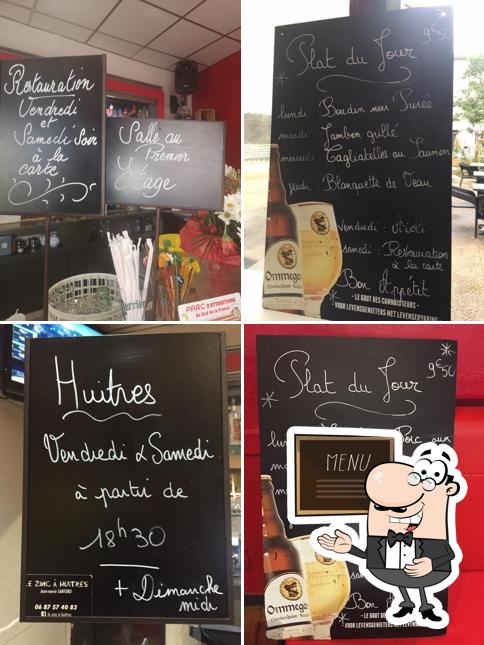 Restauration
Vendredi
et
Samedi Soir
à la
carte
Salle au
Premier
Etage
Perrier
PARC D'ATTRACTIONS
du Sud de la France
Plat du Jour
9€50
lundi : Boudin noir Purée
mardi : Jambon grillé
mercredi : Tagliatelles au Saumon
jeudi : Blanquette de Veau
Vendredi : Aïoli
samedi : Restauration
à la carte
Bon Appetit
Ommegang
Charles Quint - Keizer
- LE GOUT DES CONNAISSEURS -
VOOR LEVENSGENIETERS MET LEVENSERVARING
Huitres
Vendredi & Samedi
à partir de
18h30
+ Dimanche
midi
LE ZINC À HUITRES
Jean-marie SANTONI
06 87 57 40 83
le zinc à huitres
Plat du Jour
9€50
MENU
Ommegang
VOOR LEVENSGENIETERS MET LEVENSERVARING